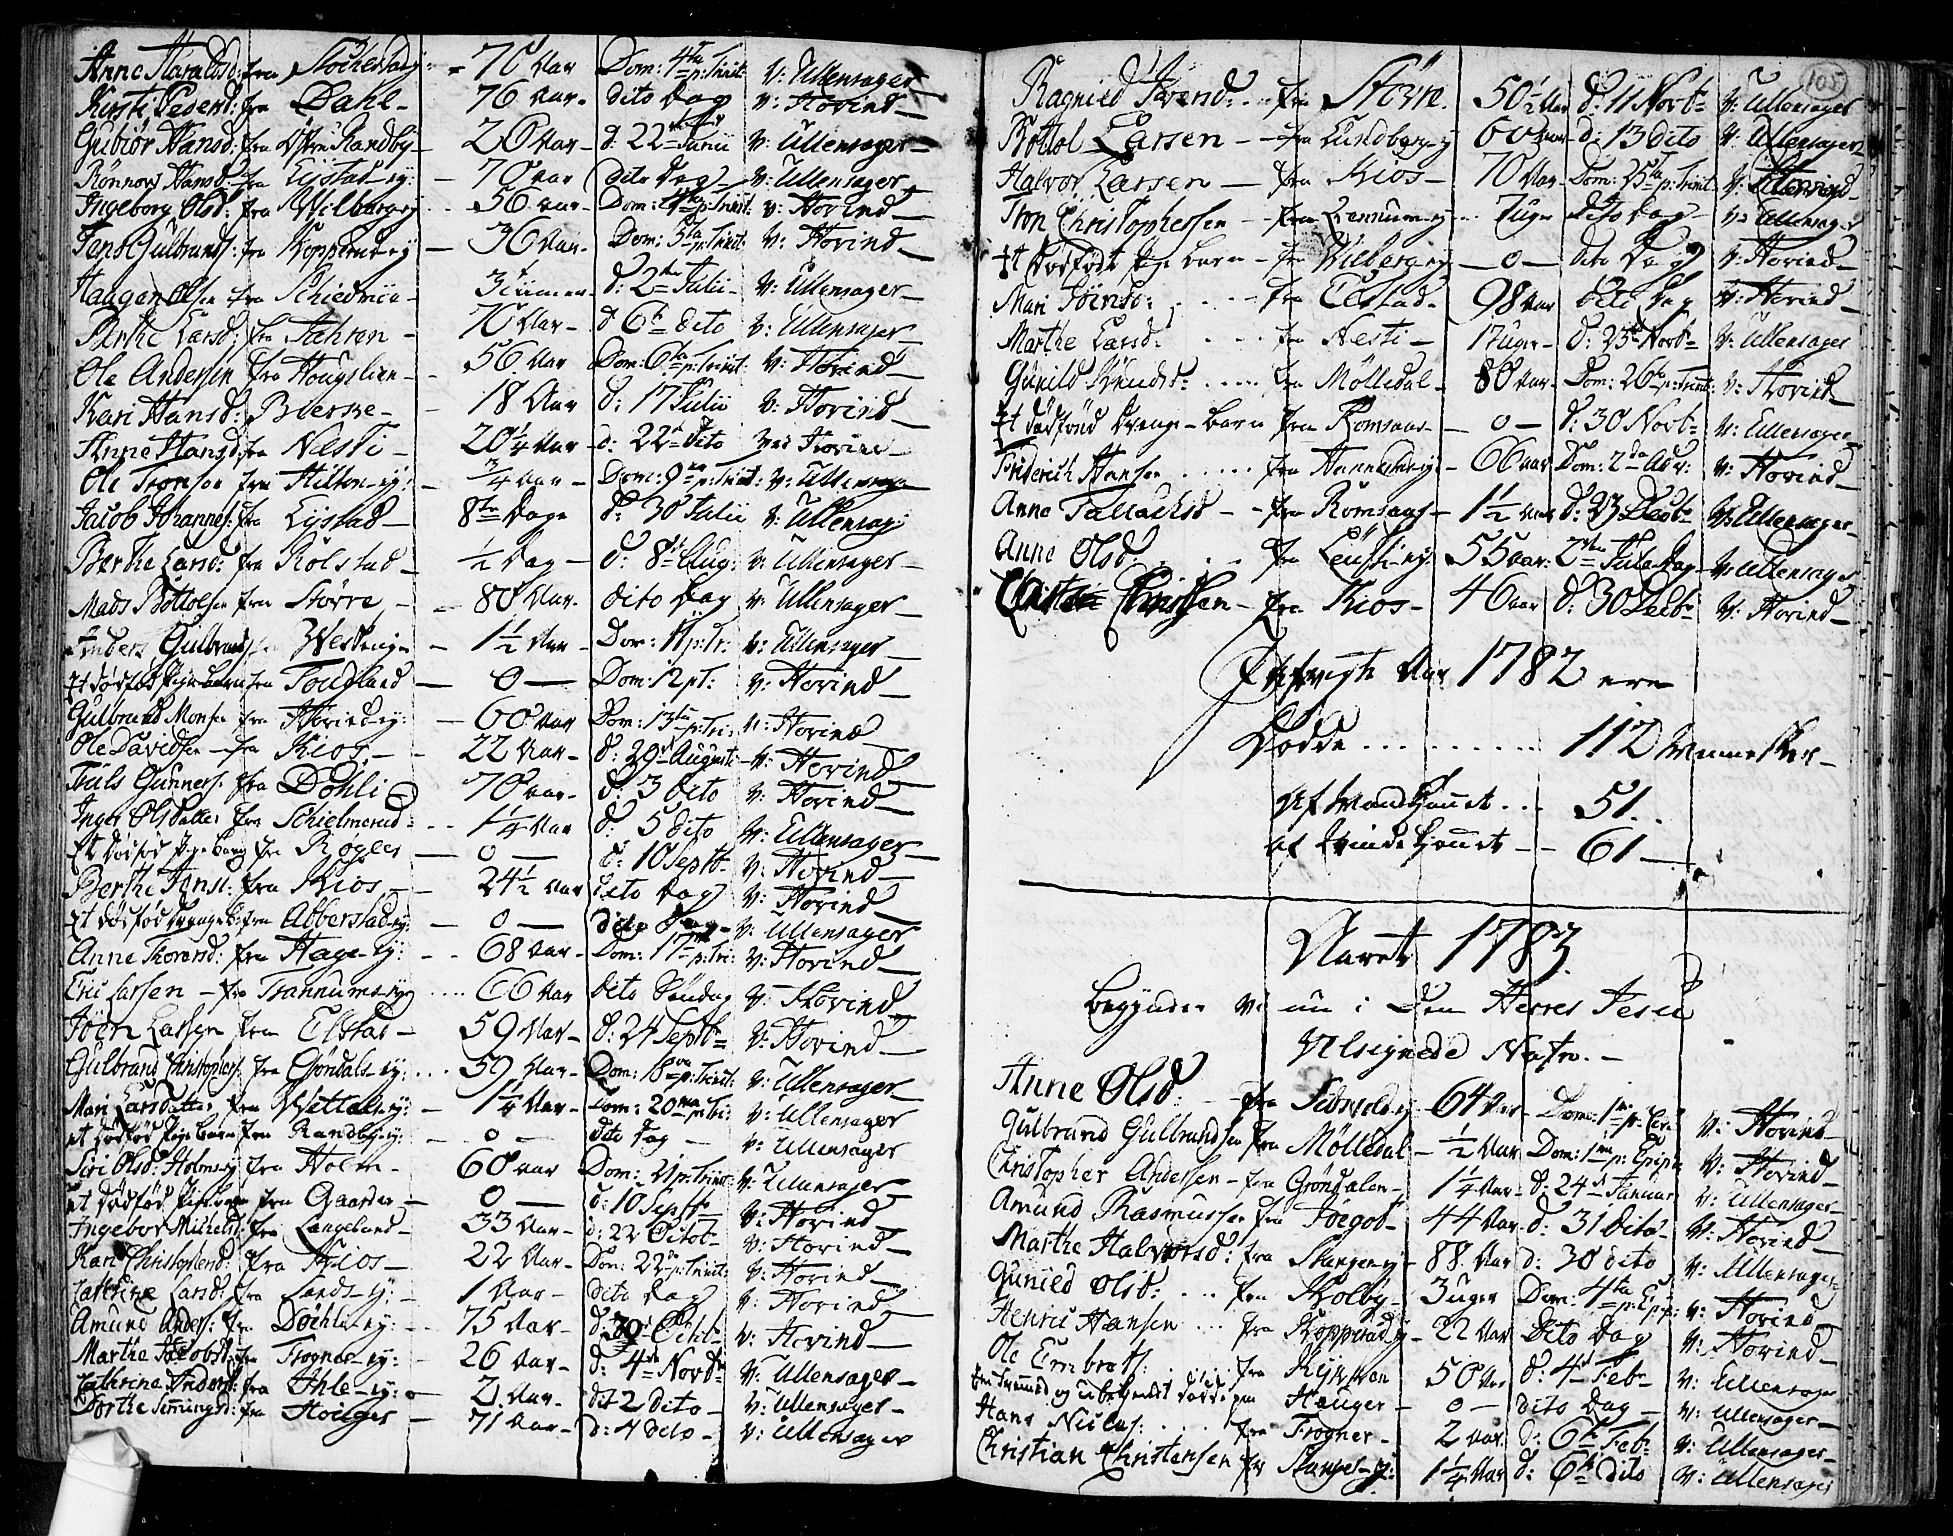 Anne Haraldsd: fra - 70 Aar Dom: 4ta p: Trinit: V: Ullensager
Kirsti Pedersd: fra Dahl - 76 Aar - dito Dag V: Hovind
Gubiör Hansd: fra Østre Randby - 26 Aar - d: 22 Junii V: Ullensager
Rönnow Hansd: fra Lÿstad-ej: - 70 aar dito Dag V: Ullensager
Ingeborg Olsd: fra Wilberg-ej - 56 aar - Dom: 4ta p: Trinit: V: Hovind
Jens Gulbrands: fra Kopperud-ej - 36 Aar - Dom: 5ta p: Trinit: V: Hovind
Haagen Olsen fra 3 d: 2den Julii - V: Ullensager
Berthe Larsd: fra Jahren - 70 Aar - d 6te dito V: Ullensager
Ole Andersen fra Hougslien - 56 Aar Dom: 6ta p: Trinit: V: Hovind
Kari Hansd: Bierke - 18 Aar d: 17 Julii V: Hovind
Anne Hansd: fra Næsti - 20 1/4 Aar - d: 22 dito ved Hovind
Ole fra Hilton-ej: 3/4 Aar - Dom: 9na p: Trinit: V: Ullensager
Jacob Johannes: fra Lÿstad - 8te Dage d: 30 Julii V: Ullensag:
Berthe Larsd: fra Rolstad - 1/2 Dag - d: 8 Aug: V: Ullensager
Mads Bottolsen fra Större - 80 Aar - dito Dag V: Ullensager
Anders Gulbrands: fra - 1 1/2 Aar - Dom: 11 p: tr: V: Ullensager
Et dödfød Pige barn fra Fougland - 0 - Dom: 12 pt: V: Hovind
Gulbrand Monsen fra Hovind-ej: - 60 Aar Dom: 13 p: Tri: V: Hovind
Ole Davidsen - fra Kios - 22 Aar - d: 29 Augusti V: Hovind
Truls Gunners: fra Döhli 70 aar - d: 3 dito V: Hovind
Inger Olsdatter fra Schielmerud - 1 1/4 Aar d: 5 dito V: Ullensager
Et dödfød Pige barn fra Rögler - 0 - d: 10 Septb - V: Hovind
Berthe Jensd: fra Kios - 24 1/2 Aar dito Dag V: Hovind
Et dödfød Drenge b: fra Abberstad-ej: - 0 - dito Dag - V: Ullensager
Anne Thorersd: fra Hage-ej: - 68 Aar - Dom: 17 p: Tri: V: Hovind
Eric Larsen - fra Trannums-ej 66 Aar dito Söndag V: Hovind
Joen Larsen fra Elstad - 59 Aar - d: 24 Septb V: Hovind
Gulbrand Christophers: fra Gröndals-ej: 59 Aar - Dom: 18 p: Trinit: V: Ullensager
Mari Larsdatter fra Wettals-ej: - 1 1/4 Aar - Dom: 20 p: Tri: V: Ullensager
et dödfød Pige barn fra Randby-ej: - 0 - dito dag - V: Ullensager
Siri Olsd: Holms-ej fra Holm - 60 aar Dom: 21 p: Trinit: V: Ullensager
et dödfød Pige barn fra Gaarder - 0 - d: 10 Septb V: Hovind
Ingebor Michelsd: fra Langeland - 33 Aar - d: 22 Octob - V: Hovind
Kari Christophersd: fra Kios - 22 Aar - Dom: 22 p: Trinit: V: Hovind
Cathrine Larsd: fra Sands-ej: - 1 Aar - dito Dag V: Hovind
Amund Anders: fra Döhli-ej: - 75 Aar - d: 30 Octb V: Hovind
Marthe Jacobsd: fra Frogner-ej: - 26 Aar - d: 4de Novb V: Ullensager
Cathrine Andersd: fra Ihle-ej: - 2 Aar - dito V: Ullensager
Dorthe fra Houger - 71 Aar - d: 4 dito - V: Ullensager
105
Ragnild Iversd: fra Större 50 1/2 Aar d: 11 Novb V: Ullensager
Bottol Larsen - fra Lundberg-ej 60 Aar d: 13 dito V: Ullensager
Halvor Larsen - fra Kios - 70 Aar - Dom: 25 p: Trinit: V: Hovind
Christophersen - fra 7 uger dito Dag - V: Ullensager
Et Dødfødt Pige barn - fra Wilberg-ej - 0 - dito Dag V: Hovind
Mari Joensd: fra Elstad - 98 Aar dito Dag V: Hovind
Marthe Larsd: fra Nesti - 17 uger - d: 23 Novb V: Ullensager
Gunild Knudsd: fra Mölledal - 80 Aar - Dom: 26 p: Trinit: V: Hovind
Et dödfød Drenge-barn fra Romsaas - 0 - d: 30 Novb - V: Ullensager
Friderich Hansen fra - 66 aar Dom: 2da Adv: V: Hovind
Anne Tallachsd - fra Romsaas - 1 1/2 aar d: 23 Decbr V: Ullensager
Anne Olsd: fra 55 aar: 2den Juledag - V: Ullensager
Christen Christsen - fra Kios - 46 aar d: 30 Decbr V: Hovind
Aar 1782 ere
Dødde 112 Mennesker -
af Mandkiønnet - 51.
af Qvindekiønnet - 61 -
Aaret 1783.
begynder vi nu i Den Herres Jesu
Velsignede Nafn. -
Anne Olsd: fra 64 Aar Dom: 1 p: V: Hovind
Gulbrand Gulbrandsen fra Mölledal - 1/2 Aar Dom: 1 p: Epip: V: Hovind
Christopher Andersen - fra Gröndalen - 1 1/4 Aar - d: 24 Januar V: Ullensager
Amund Rasmussen fra 44 Aar d: 31 dito - V: Hovind
Marthe Halvorsd: fra 88 Aar d: 30 dito V: Ullensager
Gunild Olsd: fra Kolby - 3 uger Dom: 4ta p: Ep: V: Hovind
Henric Hansen fra Kopperud-ej 22 Aar Dito Dag V: Hovind
Ole Embrets: fra 50 Aar d: 4 Feb V: Ullensager
fra Hauger - 0 - dito Dag - V: Ullensager
Hans Niclas: fra Frogner - 2 aar d: 6 Feb V: Ullensager
Christian Christensen fra 1 1/4 Aar d: 6 dito V: Ullensager